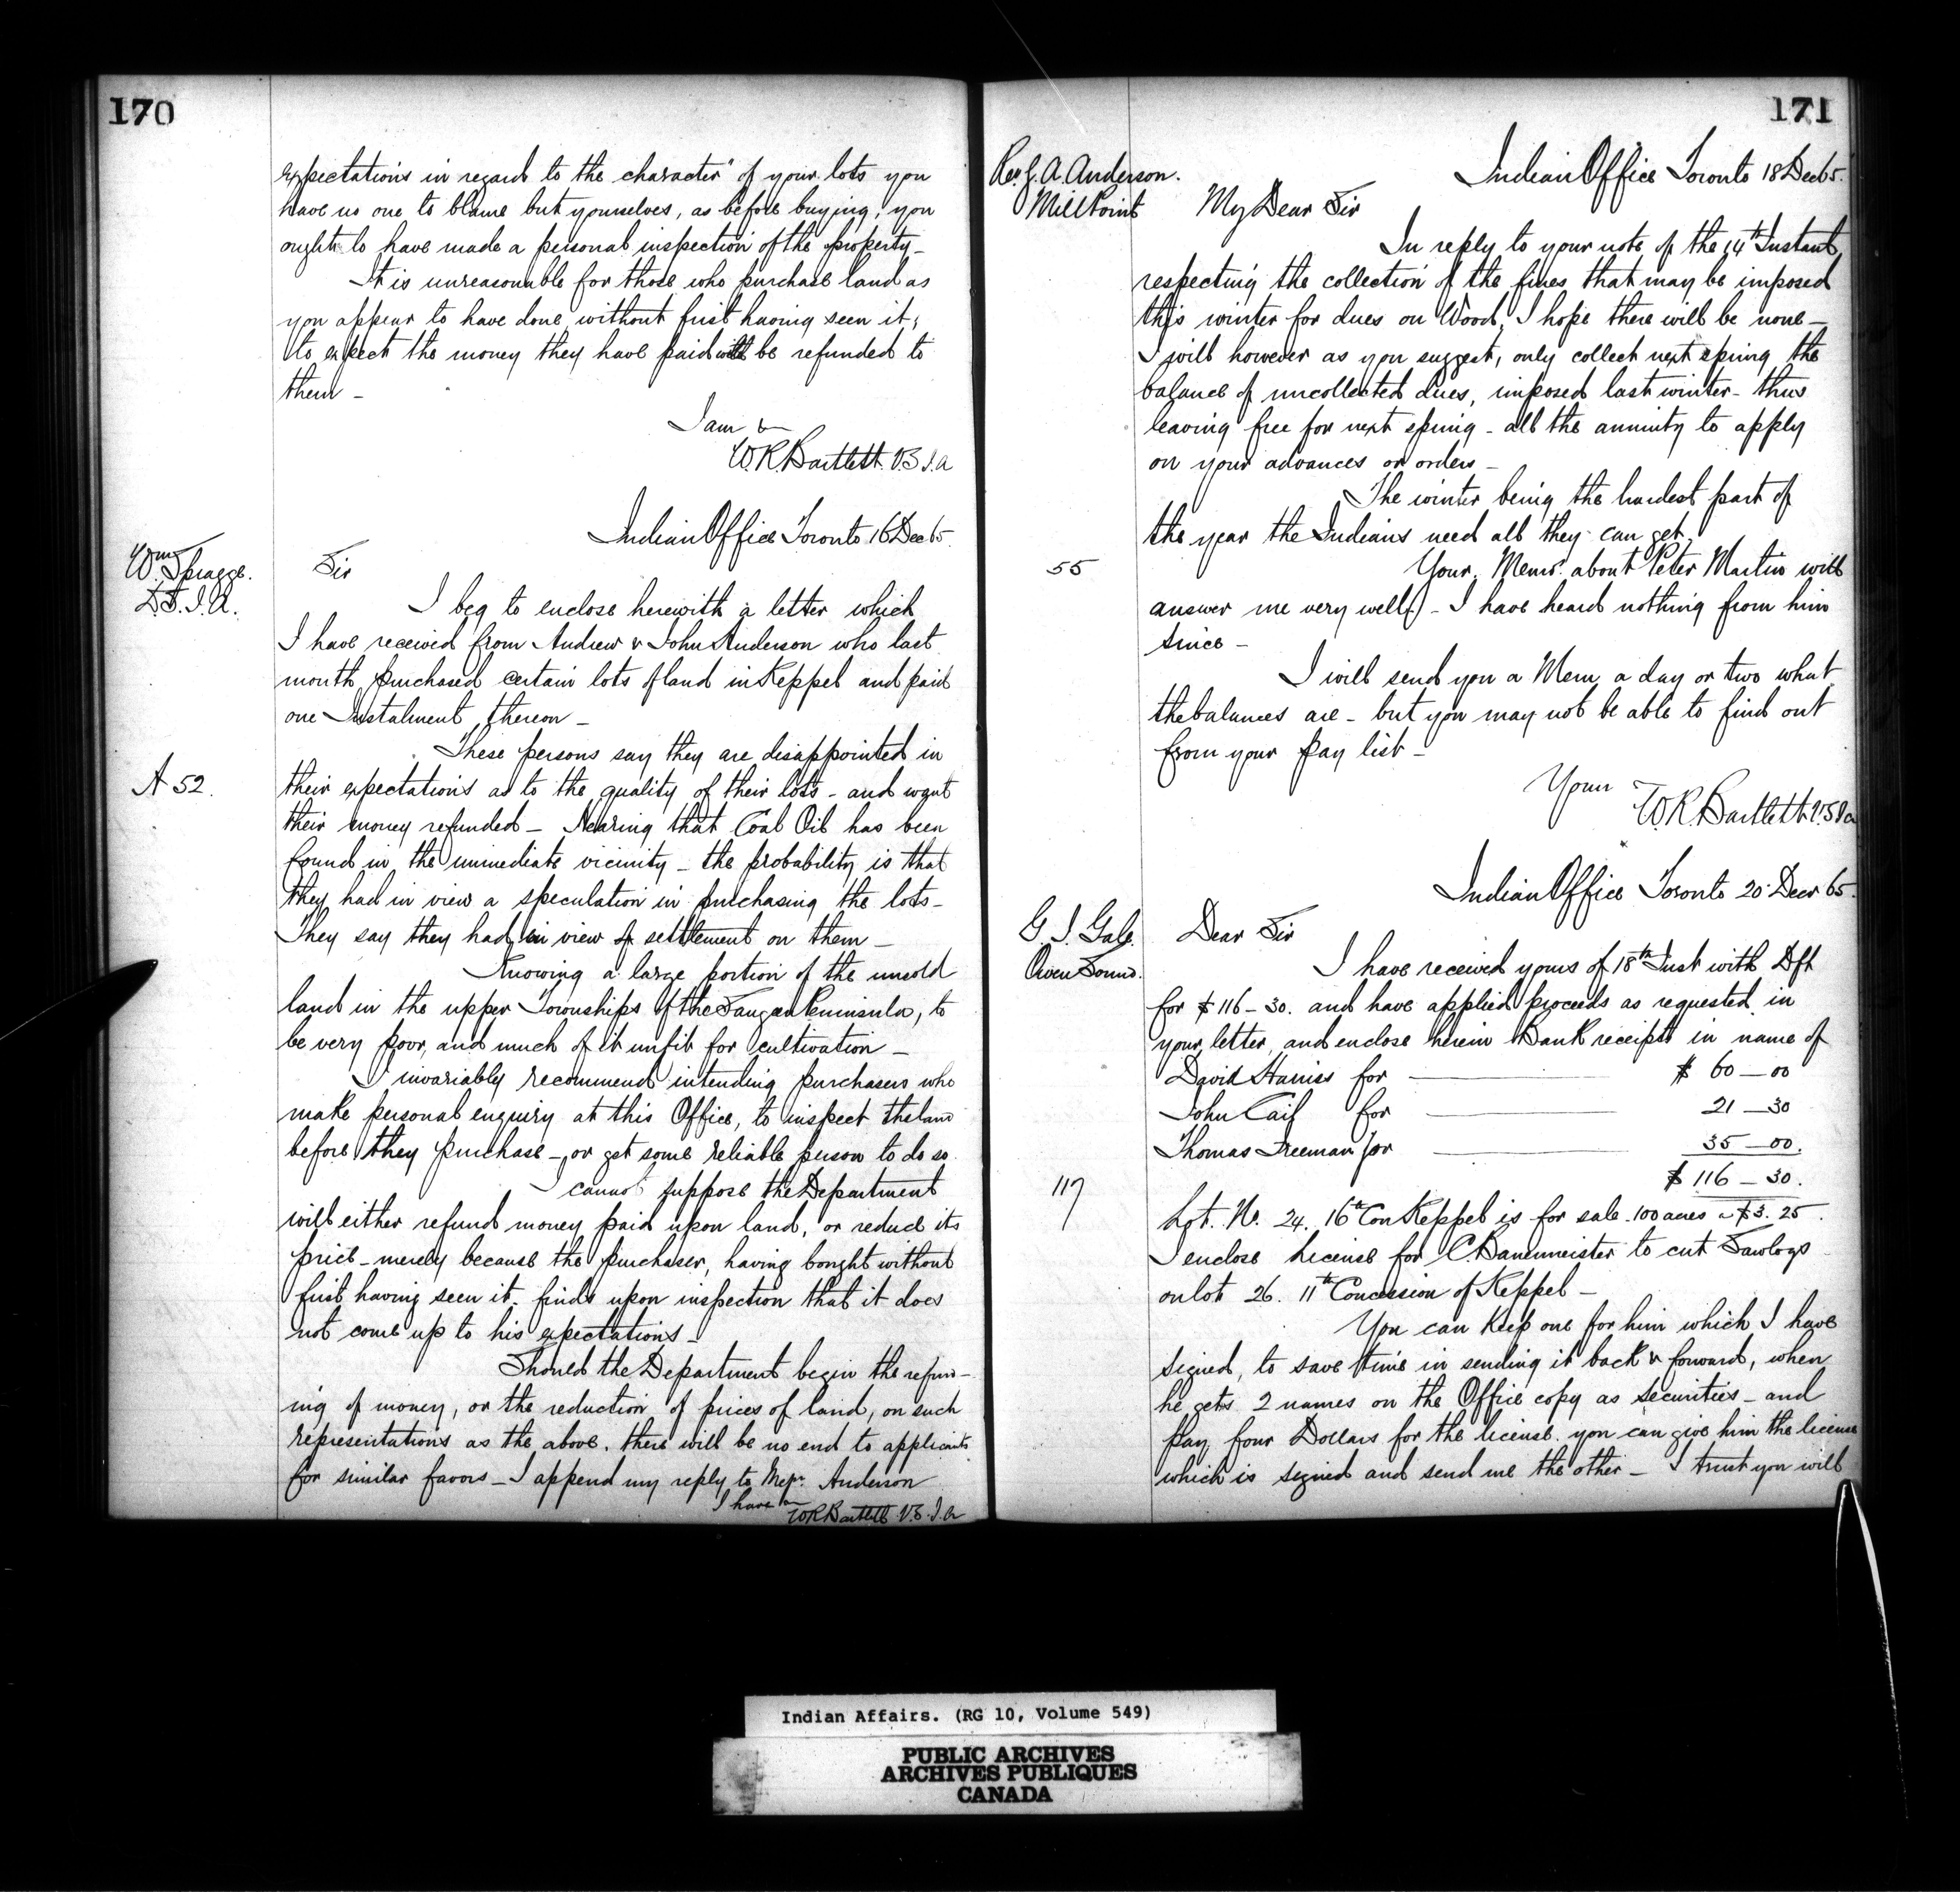 170
expectations in regard to the character" of your lots you
have no one to blame but yourselves, as before buying, you
ought to have made a personal inspection of the property_
It is unreasonable for those who purchase land as
you appear to have done, without first having seen it,
to expect the money they have paid will be refunded to
them _
I am &
W.R. Bartlett. V.S I.A
Indian Office Toronto 16 Dec 65.
Wm Spragge.
D.S.I.A.
Sir
I beg to enclose herewith a letter which
I have received from Andrew & John Anderson who last
month, purchased certain lots of land in Keppel and paid
one Instalment thereon _
These persons say they are disappointed in
A 52.
their expectations as to the quality of their lots - and want
their money refunded _ Hearing that Coal Oil has been
found in the immediate vicinity - the probability is that
they had in view a speculation in purchasing the lots-
They say they had in view of settlement on them _
Knowing a large portion of the unsold
land in the upper Townships of the Saugeen Peninsula, to
be very poor, and much of it unfit for cultivation _
I invariably recommend intending purchasers who
make personal enquiry at this Office, to inspect the land
before they purchase _ or get some reliable person to do so.
I cannot suppose the Department
will either refund money paid upon land, or reduce its
price _ merely because the purchaser, having bought without
first having seen it. finds upon inspection that it does
not come up to his expectations _
Should the Department begin the refun-
ing of money, or the reduction of prices of land, on such
representations as the above. there will be no end to applicants
for similar favors _ I append my reply to Messrs. Anderson
I have &
W.R Bartlett. V.S. I.A
171
Indian Office Toronto 18 Dec 65.
Rev. J. A. Anderson.
Mill Point
My Dear Sir
In reply to your note of the 14th Instant
respecting the collection of the fines that may be imposed
this winter for dues on Wood, I hope there will be none _
I will however as you suggest, only collect next spring the
balance of uncollected dues, imposed last winter - thus
leaving free for next spring - all the annuity to apply
on your advances or orders _
The winter being the hardest part of
the year the Indians need all they can get.
55
Your Memo. about Peter Martin will
answer me very well. - I have heard nothing from him
since _
I will send you a Mem. a day or two what
the balances are - but you may not be able to find out
from your pay list _
Yours
W.R. Bartlett. V.S I a
Indian Office Toronto 20 Decr 65.
G. J. Gale.
Owen Sound.
Dear Sir
I have received yours of 18th Inst with Dft
for $116-30. and have applied proceeds as requested in
your letter, and enclose herein Bank receipts in name of
David Harriss for $ 60 _ 00
John Cail for 21 _ 30
Thomas Freeman for 35 _ 00.
$ 116 _ 30.
117
Lot. No. 24. 16th Con Keppel is for sale. 100 acres @ $3. 25.
I enclose License for C. Bannmeister to cut Sawlogs
on lot 26. 11th Concession of Keppel _
You can keep one for him which I have
signed, to save time in sending it back & forward, when
he gets 2 names on the Office copy as securities - and
pay four Dollars for the license. you can give him the license
which is signed and send me the other _ I trust you will
Indian Affairs. (RG 10, Volume 549)
PUBLIC ARCHIVES
ARCHIVES PUBLIQUES
CANADA